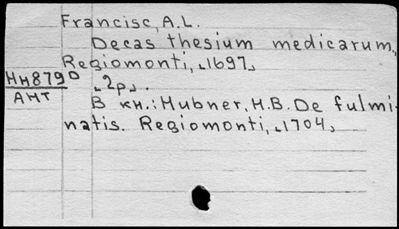 Francisc, A.L.
Decas thesium medicarum,
Regiomonti, „1697„
HH879D
„2p„.
АНТ
В кн.: Hubner, H.B. De fulmi-
natis. Regiomonti, „1704„